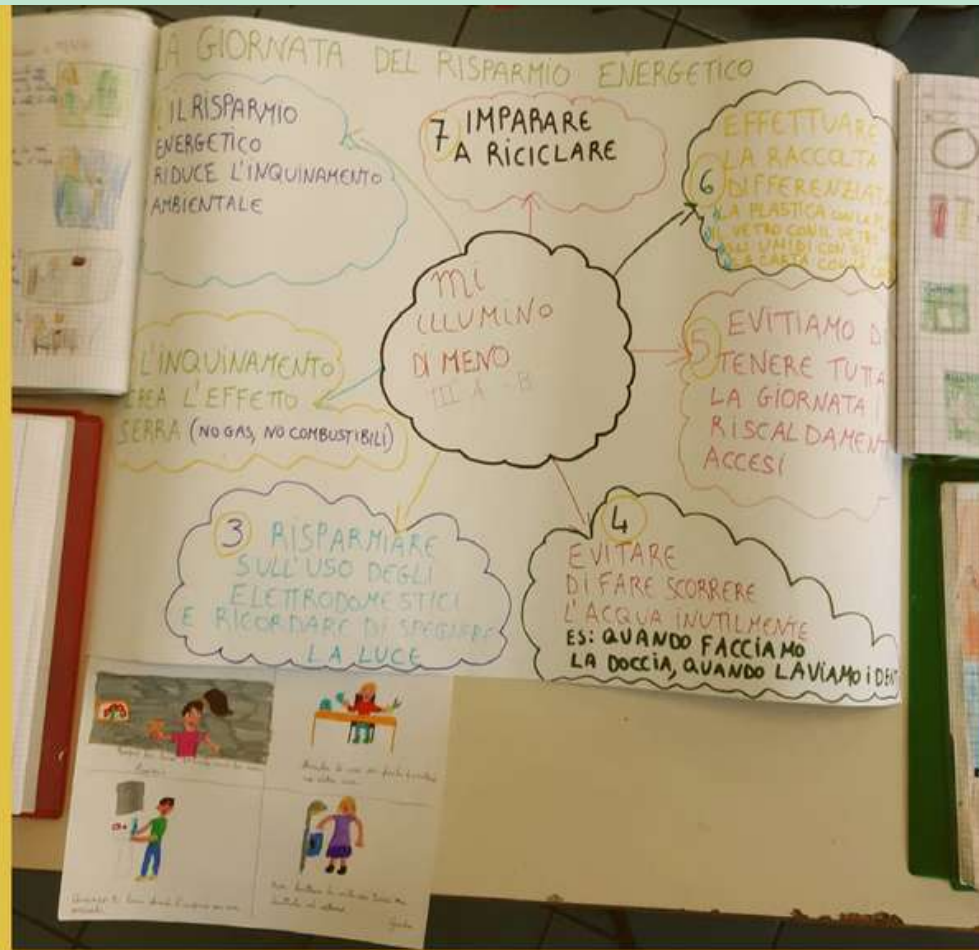 LA GIORNATA DEL RISPARMIO ENERGETICO
IL RISPARMIO
ENERGETICO
RIDUCE L'INQUINAMENTO
AMBIENTALE
7 IMPARARE
A RICICLARE
6 EFFETTUARE
LA RACCOLTA
DIFFERENZIAT
LA PLASTICA CON LA
IL VETRO CON IL VETR
GLI UMIDI CON
LA CARTA CON LA
MI
ILLUMINO
DI MENO
III A - B
L'INQUINAMENTO
CREA L'EFFETTO
SERRA (NO GAS, NO COMBUSTIBILI)
5 EVITIAMO D
TENERE TUTTA
LA GIORNATA I
RISCALDAMEN
ACCESI
3 RISPARMIARE
SULL'USO DEGLI
ELETTRODOMESTICI
E RICORDARE DI SPEGNERE
LA LUCE
4
EVITARE
DI FARE SCORRERE
L'ACQUA INUTILMENTE
ES: QUANDO FACCIAMO
LA DOCCIA, QUANDO LAVIAMO I DEN